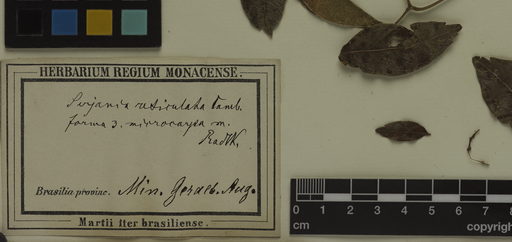 HERBARIUM REGIUM MONACENSE.
Serjania reticulata Camb.
forma 3. microcarpa m.
Radlk.
Brasilia provinc. Min. Geraes. Aug.
Martii Iter brasiliense.
0 1 2 3 4 5 6 7 8
cm copyrigh